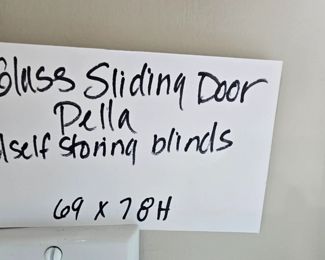 Glass Sliding Door
Pella
self storing blinds
69 x 78H